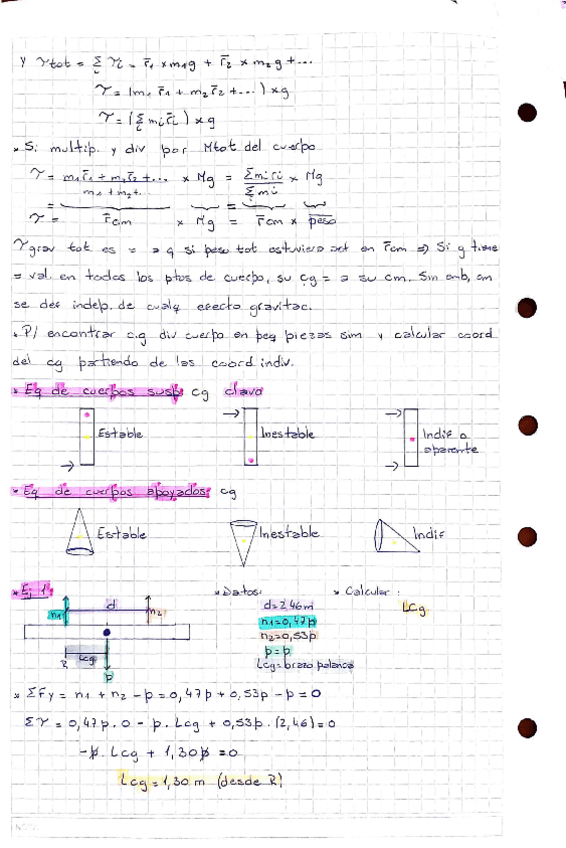 y τtot = Σ τi = r̄1 × m1g + r̄2 × m2g + ...
τ = (m1 r̄1 + m2 r̄2 + ...) × g
τ = (Σ mi r̄i) × g
* Si multip. y div por Mtot del cuerpo
τ = m1 r̄1 + m2 r̄2 + ... × Mg = Σ mi ri × Mg
m1 + m2 + .. Σ mi
τ = r̄cm × Mg = r̄cm × peso
τ grav tot es = a q si peso tot estuviera act en r̄cm ⇒ Si g tiene
= val. en todos los ptos de cuerpo, su cg = a su cm. Sin emb, cm
se def indep. de cualq efecto gravitac.
. P/ encontrar c.g div cuerpo en peq piezas sim y calcular coord
del cg partiendo de las coord. indiv.
* Eq de cuerpos susp: cg clavo
Estable Inestable Indif o
aparente
* Eq de cuerpos apoyados: cg
Estable Inestable Indif
* Ej 1: * Datos: * Calcular:
d n1 n2 d = 2,46m Lcg
n1 = 0,47p
n2 = 0,53p
R Lcg p p = p
Lcg = brazo palanca
* ΣFy = n1 + n2 - p = 0,47p + 0,53p - p = 0
Στ = 0,47p . 0 - p. Lcg + 0,53p . (2,46) = 0
-p. Lcg + 1,30p = 0
Lcg = 1,30 m (desde R)